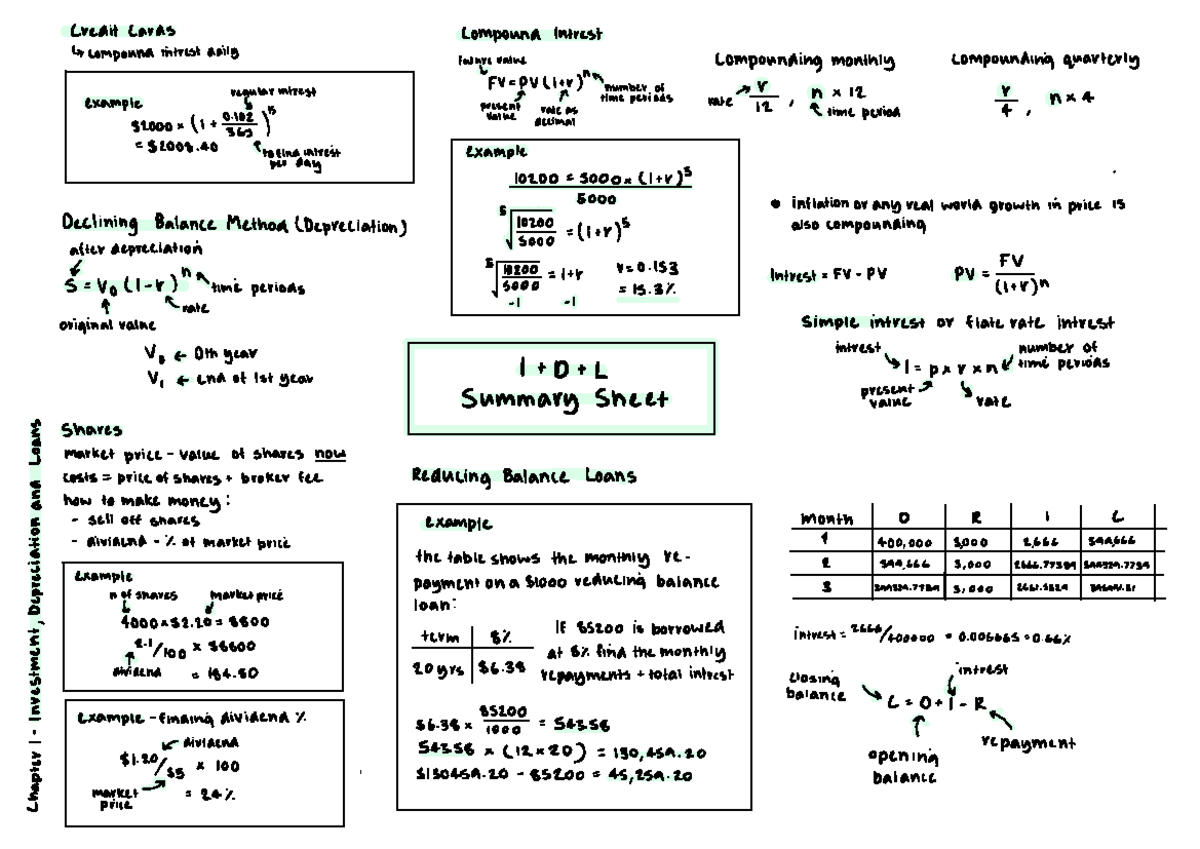 Credit Cards
↳ compound intrest daily
example
regular intrest
$2000 × (1 + 0.182/365)^15
= $2008.40
to find intrest
per day
Declining Balance Method (Depreciation)
after depreciation
S = V₀ (1-r)^n
time periods
rate
original value
V₀ ← 0th year
V₁ ← end of 1st year
Shares
market price - value of shares now
costs = price of shares + broker fee
how to make money:
- sell off shares
- dividend - % of market price
Example
n of shares
market price
4000 × $2.20 = $8800
2.1/100 × $8800
dividend
= 184.80
Example - finding dividend %
dividend
$1.20/$5 × 100
market
price
= 24%
Chapter 1 - Investment, Depreciation and Loans
Compound Intrest
future value
FV = PV (1+r)^n
number of
time periods
present
value
rate as
decimal
Example
10200 = 5000 × (1+r)^5
5000
5√10200/5000 = (1+r)^5
5√10200/5000 = 1+r
-1 -1
r = 0.153
= 15.3%
1 + D + L
Summary Sheet
Reducing Balance Loans
example
the table shows the monthly re-
payment on a $1000 reducing balance
loan:
term 8%
20 yrs $6.38
If 85200 is borrowed
at 8% find the monthly
repayments + total intrest
$6.38 × 85200/1000 = 543.58
543.58 × (12 × 20) = 130,459.20
$130459.20 - 85200 = 45,259.20
Compounding monthly
rate
r/12 , n × 12
time period
Compounding quarterly
r/4 , n × 4
• inflation or any real world growth in price is
also compounding
Intrest = FV - PV
PV = FV/(1+r)^n
Simple intrest or flate rate intrest
intrest
I = p × r × n
number of
time periods
present
value
rate
Month O R I C
1 400,000 3,000 2,666
2 3,000
3 3,000
intrest = 2666/400000 = 0.006665 = 0.66%
intrest
closing
balance
C = O + I - R
opening
balance
repayment